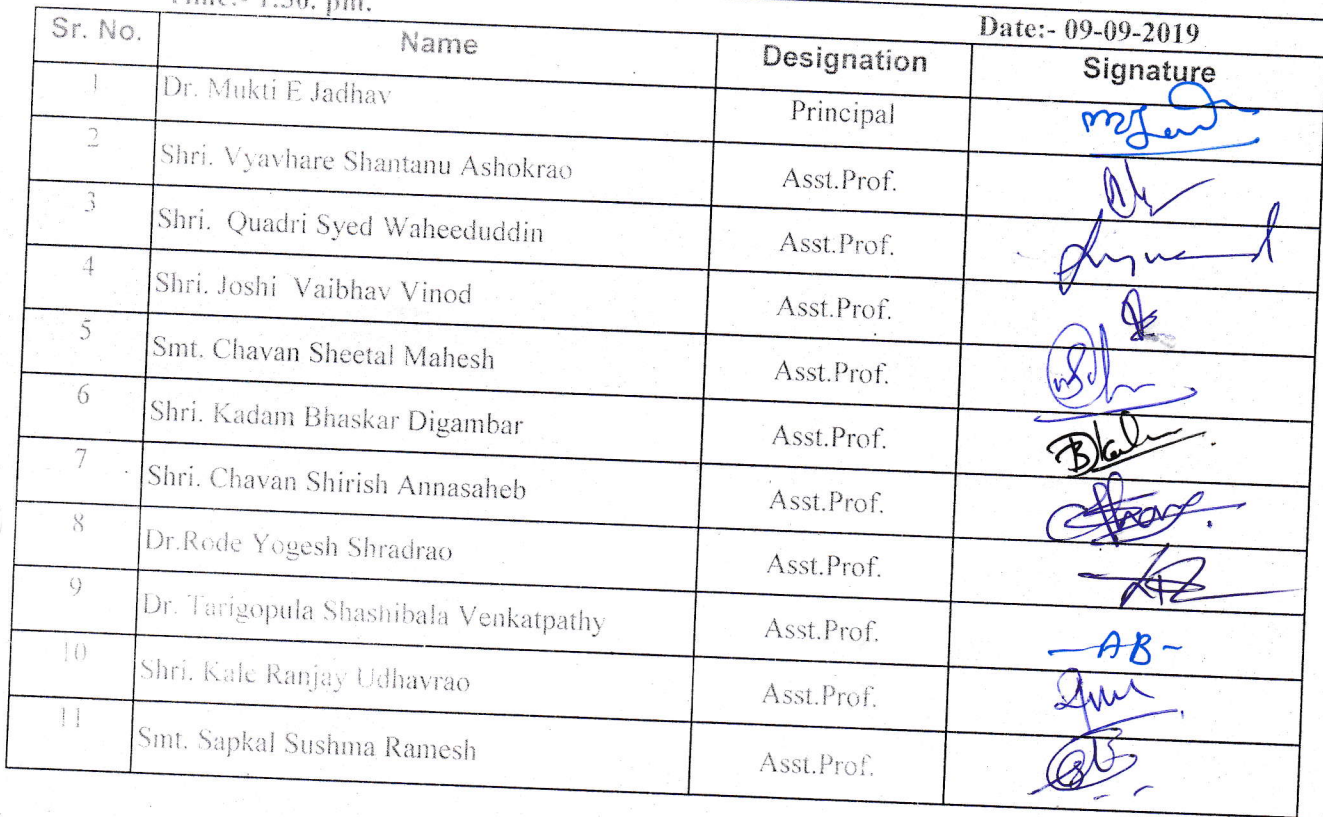 Time:- 1.30. pm.
Date:- 09-09-2019
Sr. No. Name Designation Signature
1 Dr. Mukti E Jadhav Principal
2 Shri. Vyavhare Shantanu Ashokrao Asst.Prof.
3 Shri. Quadri Syed Waheeduddin Asst.Prof.
4 Shri. Joshi Vaibhav Vinod Asst.Prof.
5 Smt. Chavan Sheetal Mahesh Asst.Prof.
6 Shri. Kadam Bhaskar Digambar Asst.Prof.
7 Shri. Chavan Shirish Annasaheb Asst.Prof.
8 Dr.Rode Yogesh Shradrao Asst.Prof.
9 Dr. Tarigopula Shashibala Venkatpathy Asst.Prof. -AB-
10 Shri. Kale Ranjay Udhavrao Asst.Prof.
11 Smt. Sapkal Sushma Ramesh Asst.Prof.